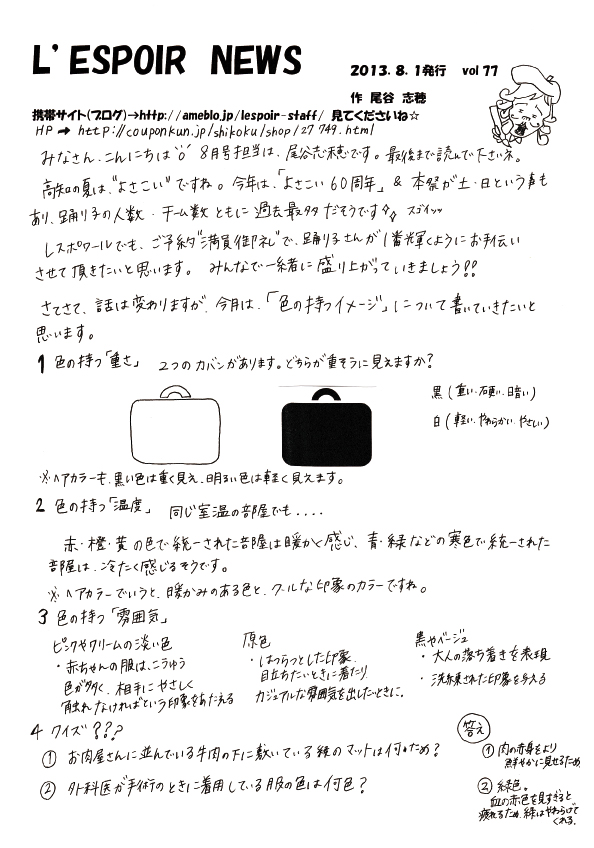 L'ESPOIR NEWS
2013.8.1発行 vol 77
作 尾谷 志穂
携帯サイト(ブログ)→http://ameblo.jp/lespoir-staff/ 見てくださいね☆
HP → http://couponkun.jp/shikoku/shop/27749.html
みなさん、こんにちは 8月号担当は、尾谷志穂です。最後まで読んで下さいネ。
高知の夏は、"よさこい"ですね。今年は、「よさこい60周年」& 本祭が土・日という事も
あり、踊り子の人数・チーム数ともに過去最多だそうです スゴイッッ
レスポワールでも、ご予約"満員御礼"で、踊り子さんが1番輝くようにお手伝い
させて頂きたいと思います。 みんなで一緒に盛り上がっていきましょう!!
さてさて、話は変わりますが、今月は、「色の持つイメージ」について書いていきたいと
思います。
1 色の持つ「重さ」 2つのカバンがあります。どちらが重そうに見えますか?
黒(重い・硬い・暗い)
白(軽い・やわらかい・やさしい)
※ヘアカラーも、黒い色は重く見え、明るい色は軽く見えます。
2 色の持つ「温度」 同じ室温の部屋でも・・・・
赤・橙・黄の色で統一された部屋は暖かく感じ、青・緑などの寒色で統一された
部屋は、冷たく感じるそうです。
※ヘアカラーでいうと、暖かみのある色と、クールな印象のカラーですね。
3 色の持つ「雰囲気」
ピンクやクリームの淡い色
・赤ちゃんの服は、こうゆう
色が多く、相手にやさしく
触れなければという印象をあたえる
原色
・はつらつとした印象、
目立ちたいときに着たり
カジュアルな雰囲気を出したいときに。
黒やベージュ
・大人の落ち着きを表現
・洗練された印象を与える
4 クイズ???
① お肉屋さんに並んでいる牛肉の下に敷いている緑のマットは何のため?
② 外科医が手術のときに着用している服の色は何色?
答え
① 肉の赤身をより
鮮やかに見せるため
② 緑色。
血の赤色を見すぎると
疲れるため、緑はやわらげて
くれる。